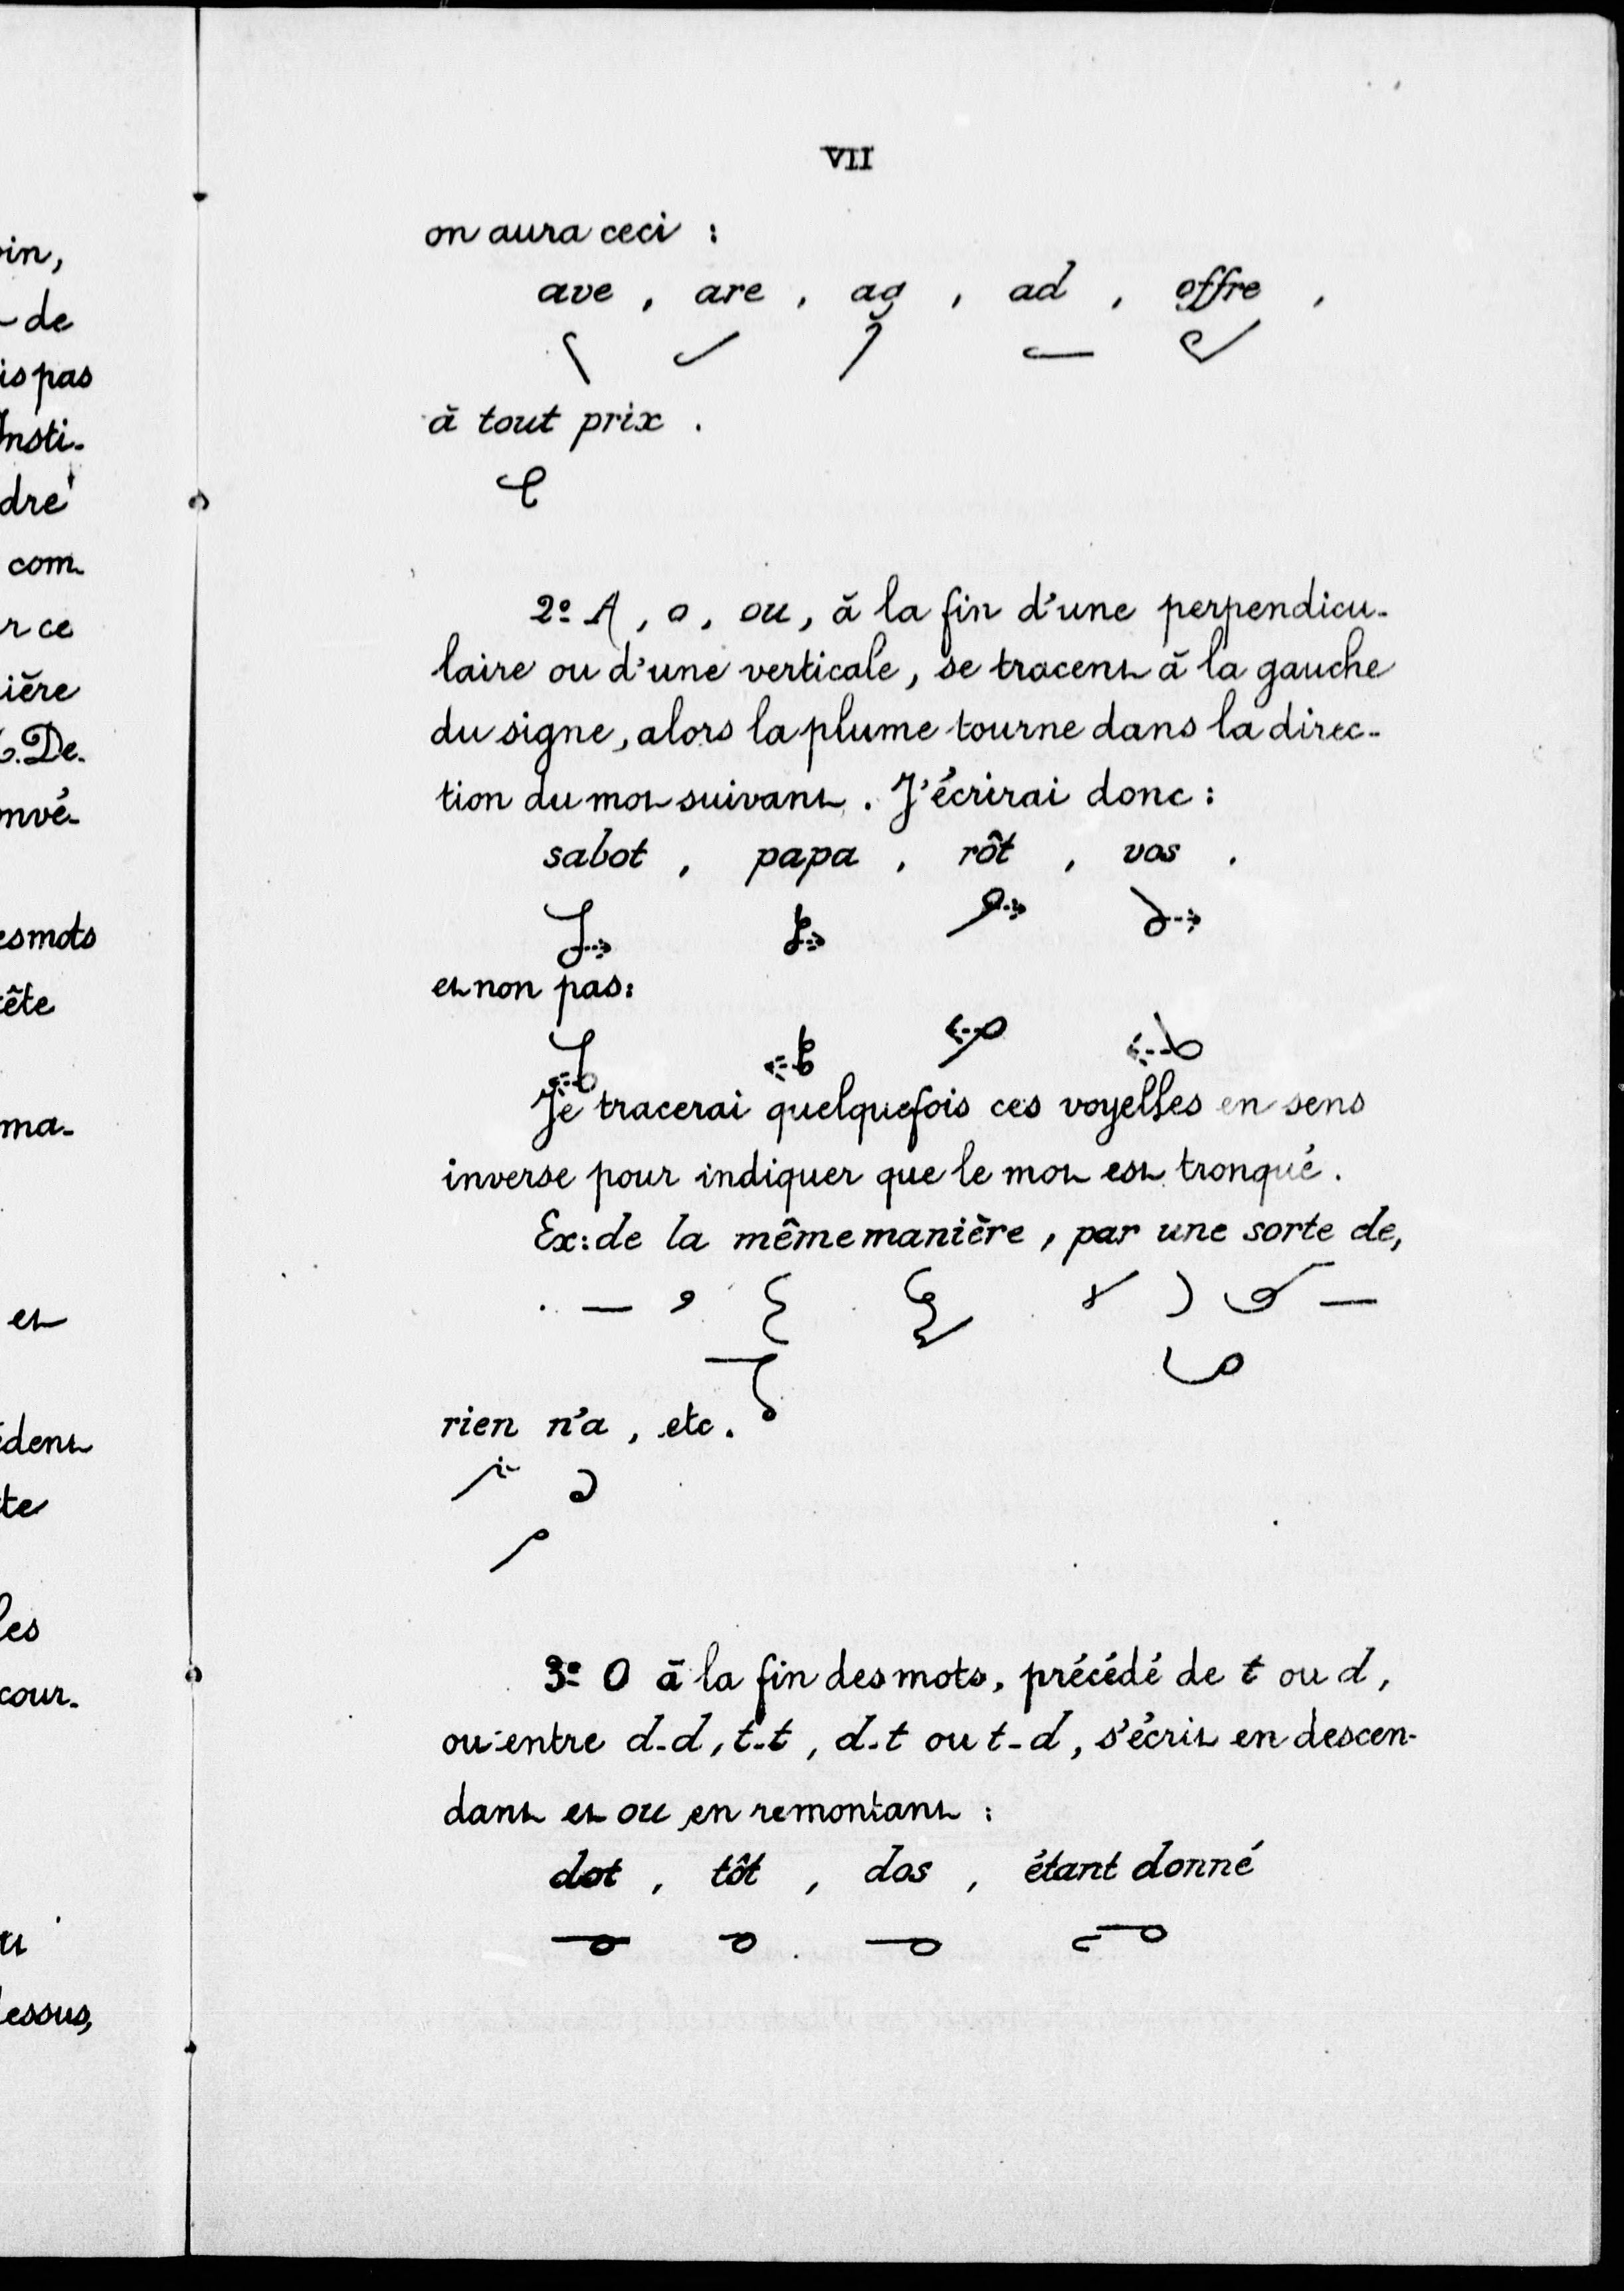 oin,
- de
is pas
Insti-
dre
com-
r ce
ière
De-
nvé-
es mots
ête
ma-
et
édent
te
les
cour-
essus,
VII
on aura ceci :
ave , are , ag , ad , offre ,
à tout prix .
2º A, o, ou, à la fin d'une perpendicu-
laire ou d'une verticale, se tracent à la gauche
du signe, alors la plume tourne dans la direc-
tion du mot suivant. J'écrirai donc :
sabot , papa , rôt , vos .
et non pas :
Je tracerai quelquefois ces voyelles en sens
inverse pour indiquer que le mot est tronqué.
Ex: de la même manière, par une sorte de,
rien n'a, etc.
3º O à la fin des mots, précédé de t ou d,
ou entre d-d, t-t, d-t ou t-d, s'écrit en descen-
dant et ou en remontant :
dot , tôt , dos , étant donné